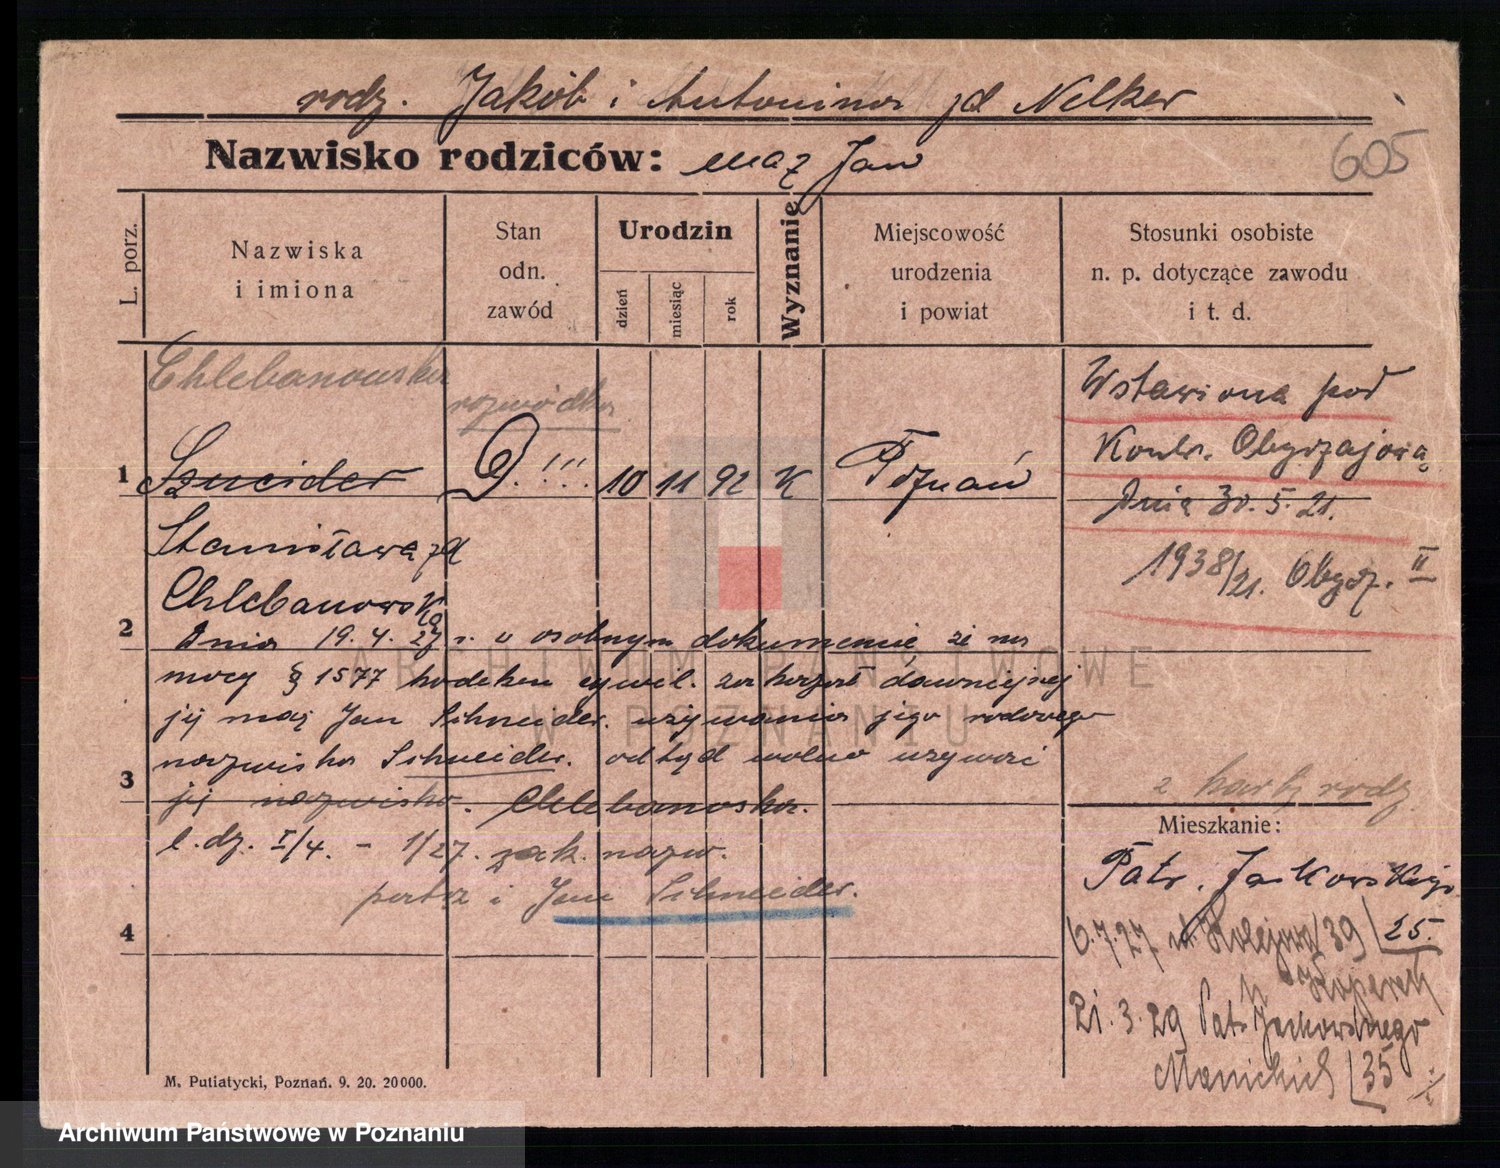 rodz. Jakób i Antonina zd Nelker
Nazwisko rodziców: mąż Jan
605
L. porz.
Nazwiska
i imiona
Stan
odn.
zawód
Urodzin
dzień
miesiąc
rok
Wyznanie
Miejscowość
urodzenia
i powiat
Stosunki osobiste
n. p. dotyczące zawodu
i t. d.
Chlebanowska
rozwódka
1
Szneider
D.!!!
10
11
92
K
Poznań
Wstawiona pod
Kontr. Obyczajową
Dnia 30.5.21.
1938/21. Obycz. II
Stanisława zd
Chlebanowska
2
Dnia 19.4.27 r. w osobnym dokumencie ze na
mocy § 1577 kodeksu cywil. zakazał dawniejszej
jej mąż Jan Schneider. używania jego rodowego
nazwiska Schneider. odtąd wolno używać
3
jej nazwisko. Chlebanoska.
l. dz. I/4. - 1/27. zak. nazw.
patrz i Jan Schneider.
4
z karty rodz
Mieszkanie:
Patr. Jackowskiego
25.
6.7.27 Kolejowa 39
21.3.29 Patr Jackowskiego
35
M. Putiatycki, Poznań. 9. 20. 20000.
ARCHIWUM PAŃSTWOWE
W POZNANIU
Archiwum Państwowe w Poznaniu